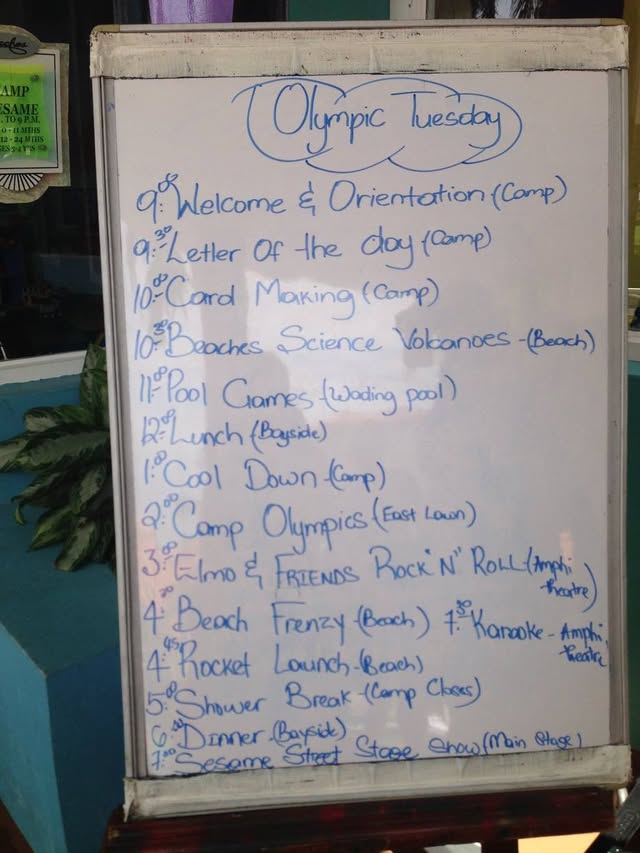 Beaches
CAMP
SESAME
TO 9 P.M.
0-11 MTHS
12-24 MTHS
Olympic Tuesday
9:00 Welcome & Orientation (Camp)
9:30- Letter Of the day (Camp)
10:00- Card Making (Camp)
10:30- Beaches Science Volcanoes - (Beach)
11:00- Pool Games - (Wading pool)
12:00- Lunch (Bayside)
1:00- Cool Down - (Camp)
2:00 Camp Olympics (East Lawn)
3:00- Elmo & FRIENDS ROCK "N" ROLL - (Amphi
theatre)
4:00 Beach Frenzy - (Beach) 7:30- Karaoke - Amphi
theatre
4:45 Rocket Launch - (Beach)
5:00 Shower Break - (Camp Closes)
6:00 Dinner - (Bayside)
7:00- Sesame Street Stage Show (Main Stage)